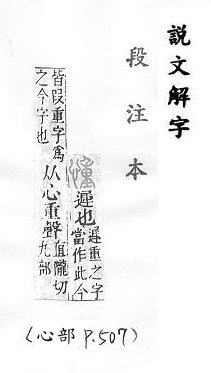 說文解字
段注本
𢤱遲也遲重之字
當作此今
皆叚重字爲
之今字也
从心重聲直隴切
九部
(心部 P.507)